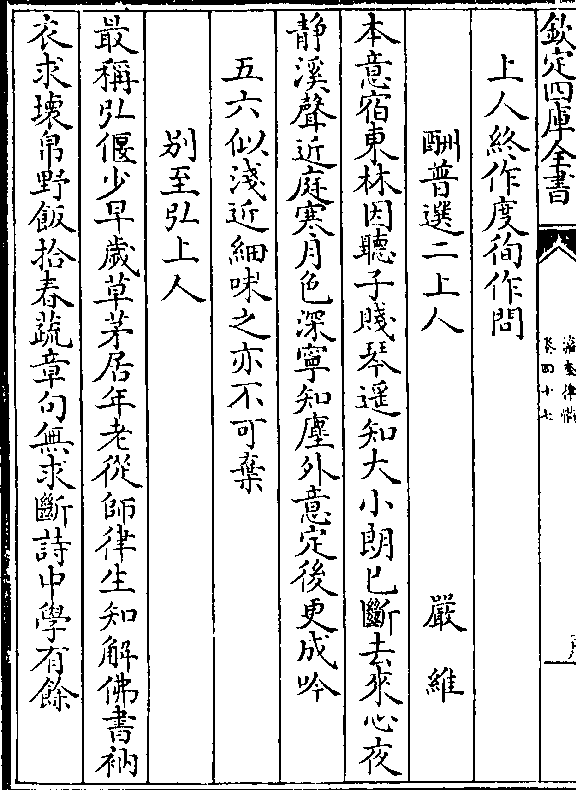 欽定四庫全書
瀛奎律髓
卷四十七
上人終作度徇作問
酬普選二上人 嚴維
本意宿東林因聽子賤琴遥知大小朗已斷去來心夜
静溪聲近庭寒月色深寧知塵外意定後更成吟
五六似淺近細味之亦不可棄
别至弘上人
最稱弘偃少早歳草茅居年老從師律生知解佛書衲
衣求壊帛野飯拾春蔬章句無求斷詩中學有餘